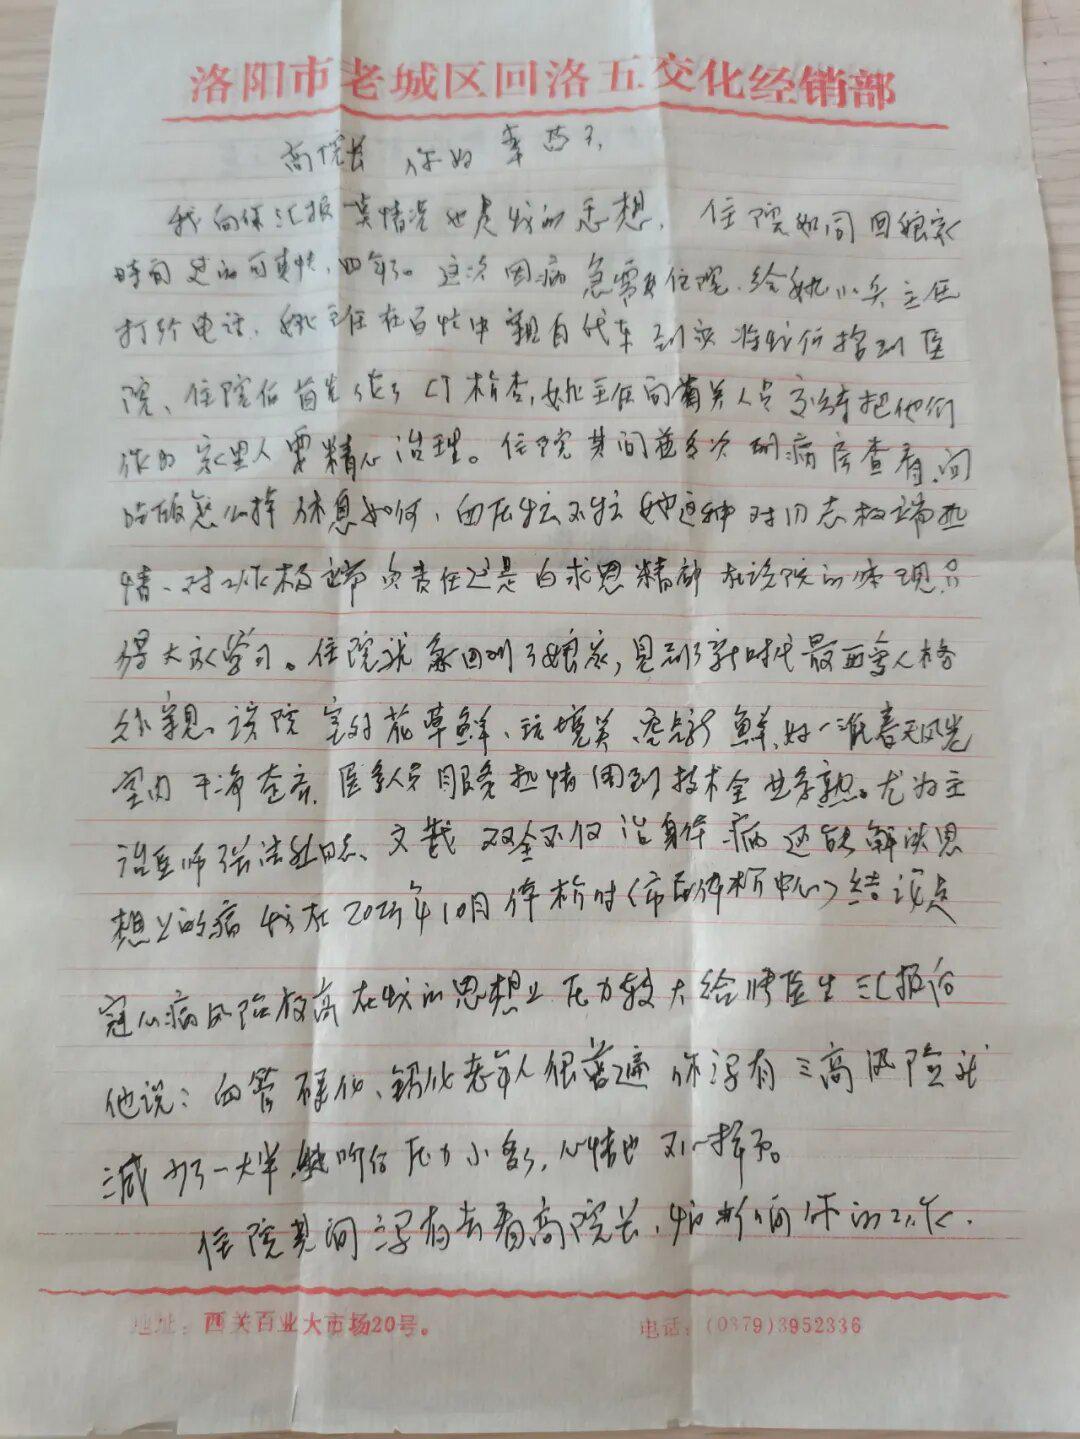 洛阳市老城区回洛五交化经销部
高院长 你好 辛苦了,
我向你汇报一莫情况也是我的思想, 住院如同回娘家
时间过的可真快,四年了。这次因病急需要住院,给姚小兵主任
打个电话,姚主任在百忙中亲自代车到家将我们接到医
院、住院后首先做了CT检查,姚主任向有关人员交待把他们
作为家里人要精心治理。住院其间并多次到病房查看,问
吃饭怎么样休息如何,血压
对同志极端热
情、对工作极端负责任这是白求恩精神在该院的体现,只
得大家学习。住院就象回到了娘家,见到了新时代最
人格
外亲。该院室外花草鲜、环境美、空气新鲜,好一派春天风光
室内干净整齐,医务人员服务热情周到技术全业务熟。尤为主
治医师张
同志、文武双全不仅治身体病还能解决思
想上的病 我在
年10月体检时(市
体检中心)结论是
冠心病风险较高在我的思想上压力较大给
医生汇报后
他说:血管硬化、钙化老年人很普遍 你没有三高风险就
减少了一大半,
听后压力小多了,心情也不一样了。
住院其间没有去看高院长,怕打
你的工作.
地址: 西关百业大市场20号。 电话:(0379)3952336